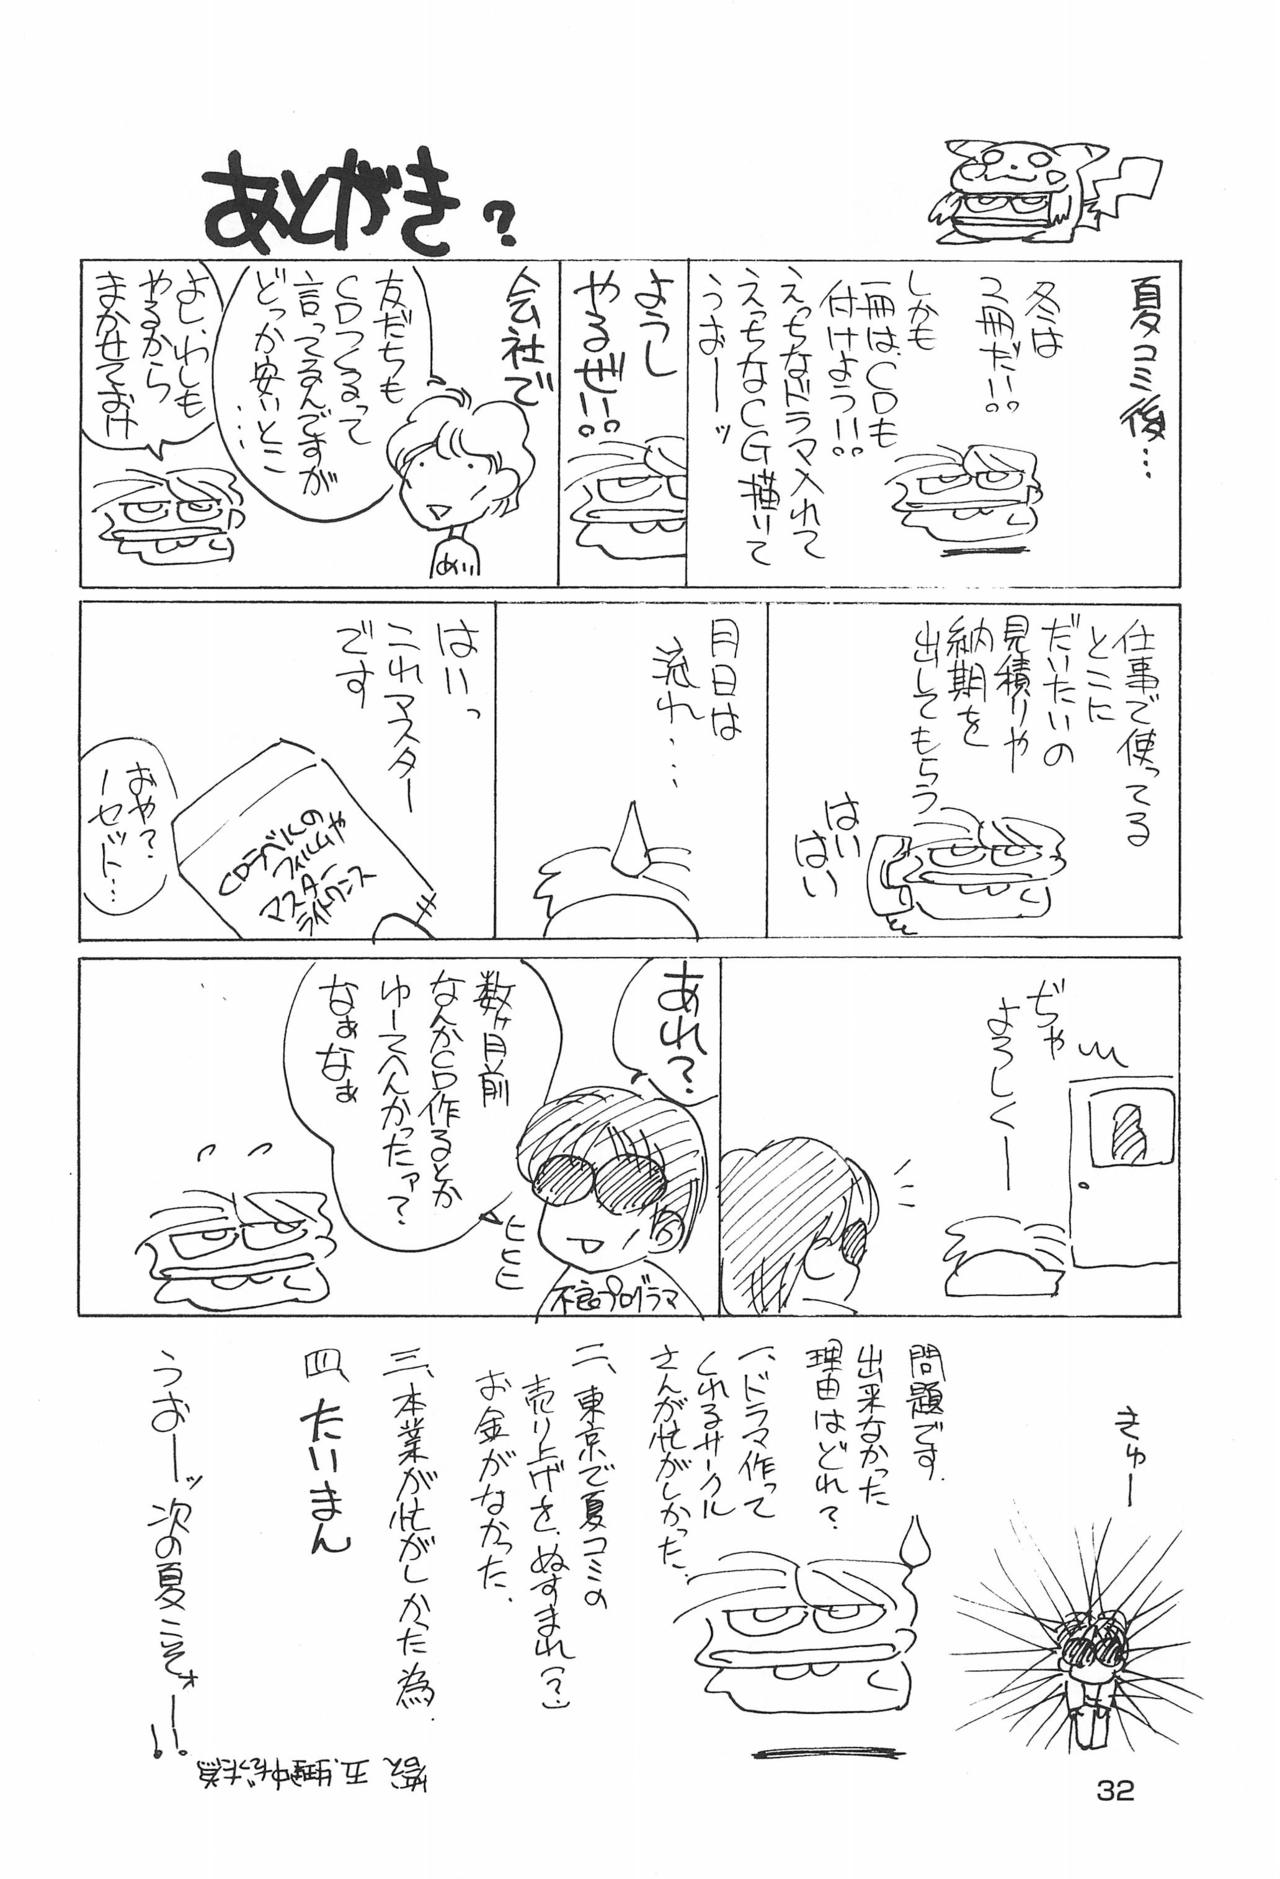 あとがき?
夏コミ後…
冬は
2冊だ!!。
しかも
一冊は、CDも
付けよう!!。
えっちなドラマ入れて
えっちなCG描いて
うおーッ
ようし
やるぜ!!。
会社で
友だちも
CDつくるって
言ってるんですが
どっか安いとこ
…
めい
よし、わしも
やるから
まかせておけ
仕事で使ってる
とこに
だいたいの
見積りや
納期を
出してもらう
はい
はい
月日は
流れ…
はいっ
これマスター
です
CDラベルの
フィルムや
マスター
ライトワンス
おや?
ーセット…
ぢゃ
よろしくー
あれ?
数ヶ月前
なんかCD作るとか
ゆーてへんかったァ?
なぁなぁ
ヒヒヒ
不良プログラマ
きゅー
問題です.
出来なかった
理由はどれ?
一、ドラマ作って
くれるサークル
さんが忙がしかった.
二、東京で夏コミの
売り上げを、ぬすまれ(?)
お金がなかった.
三、本業が忙がしかった為.
四、たいまん
うおーッ次の夏こそォー!!
32